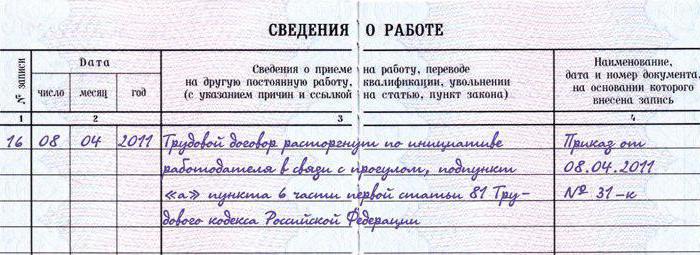 СВЕДЕНИЯ О РАБОТЕ
№ записи
Дата
число
месяц
год
Сведения о приеме на работу, переводе
на другую постоянную работу, квалификации, увольнении
(с указанием причин и ссылкой на статью, пункт закона)
Наименование,
дата и номер документа,
на основании которого
внесена запись
1
2
3
4
16
08
04
2011
Трудовой договор расторгнут по инициативе
работодателя в связи с прогулом, подпункт
«а» пункта 6 части первой статьи 81 Тру-
дового кодекса Российской Федерации
Приказ от
08.04.2011
№ 31-к